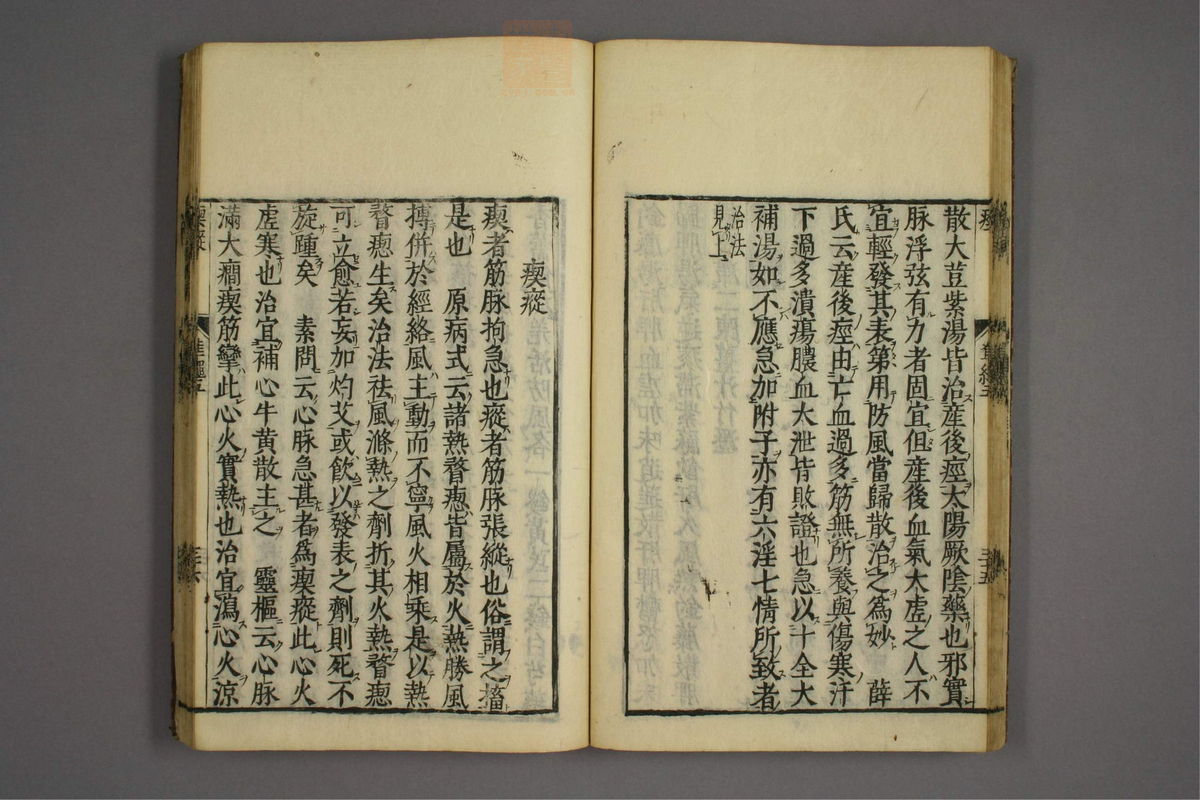 散大荳紫湯皆治產後痙太陽厥陰藥也邪實
脉浮弦有力者固宜但產後血氣大虛之人不
宜輕發其表第用防風當歸散治之為妙　薛
氏云產後痙由亡血過多筋無所養與傷寒汗
下過多潰瘍膿血大泄皆敗證也急以十全大
補湯如不應急加附子亦有六淫七情所致者
治法
見上
瘈瘲
瘈者筋脉拘急也瘲者筋脉張縱也俗謂之搐
是也　原病式云諸熱瞀瘛皆屬於火熱勝風
搏併於經絡風主動而不寧風火相乘是以熱
瞀瘛生矣治法祛風滌熱之劑折其火熱瞀瘛
可立愈若妄加灼艾或飲以發表之劑則死不
旋踵矣　素問云心脉急甚者為瘈瘲此心火
虛寒也治宜補心牛黃散主之　靈樞云心脉
滿大癎瘈筋攣此心火實熱也治宜瀉心火涼
瘈瘲